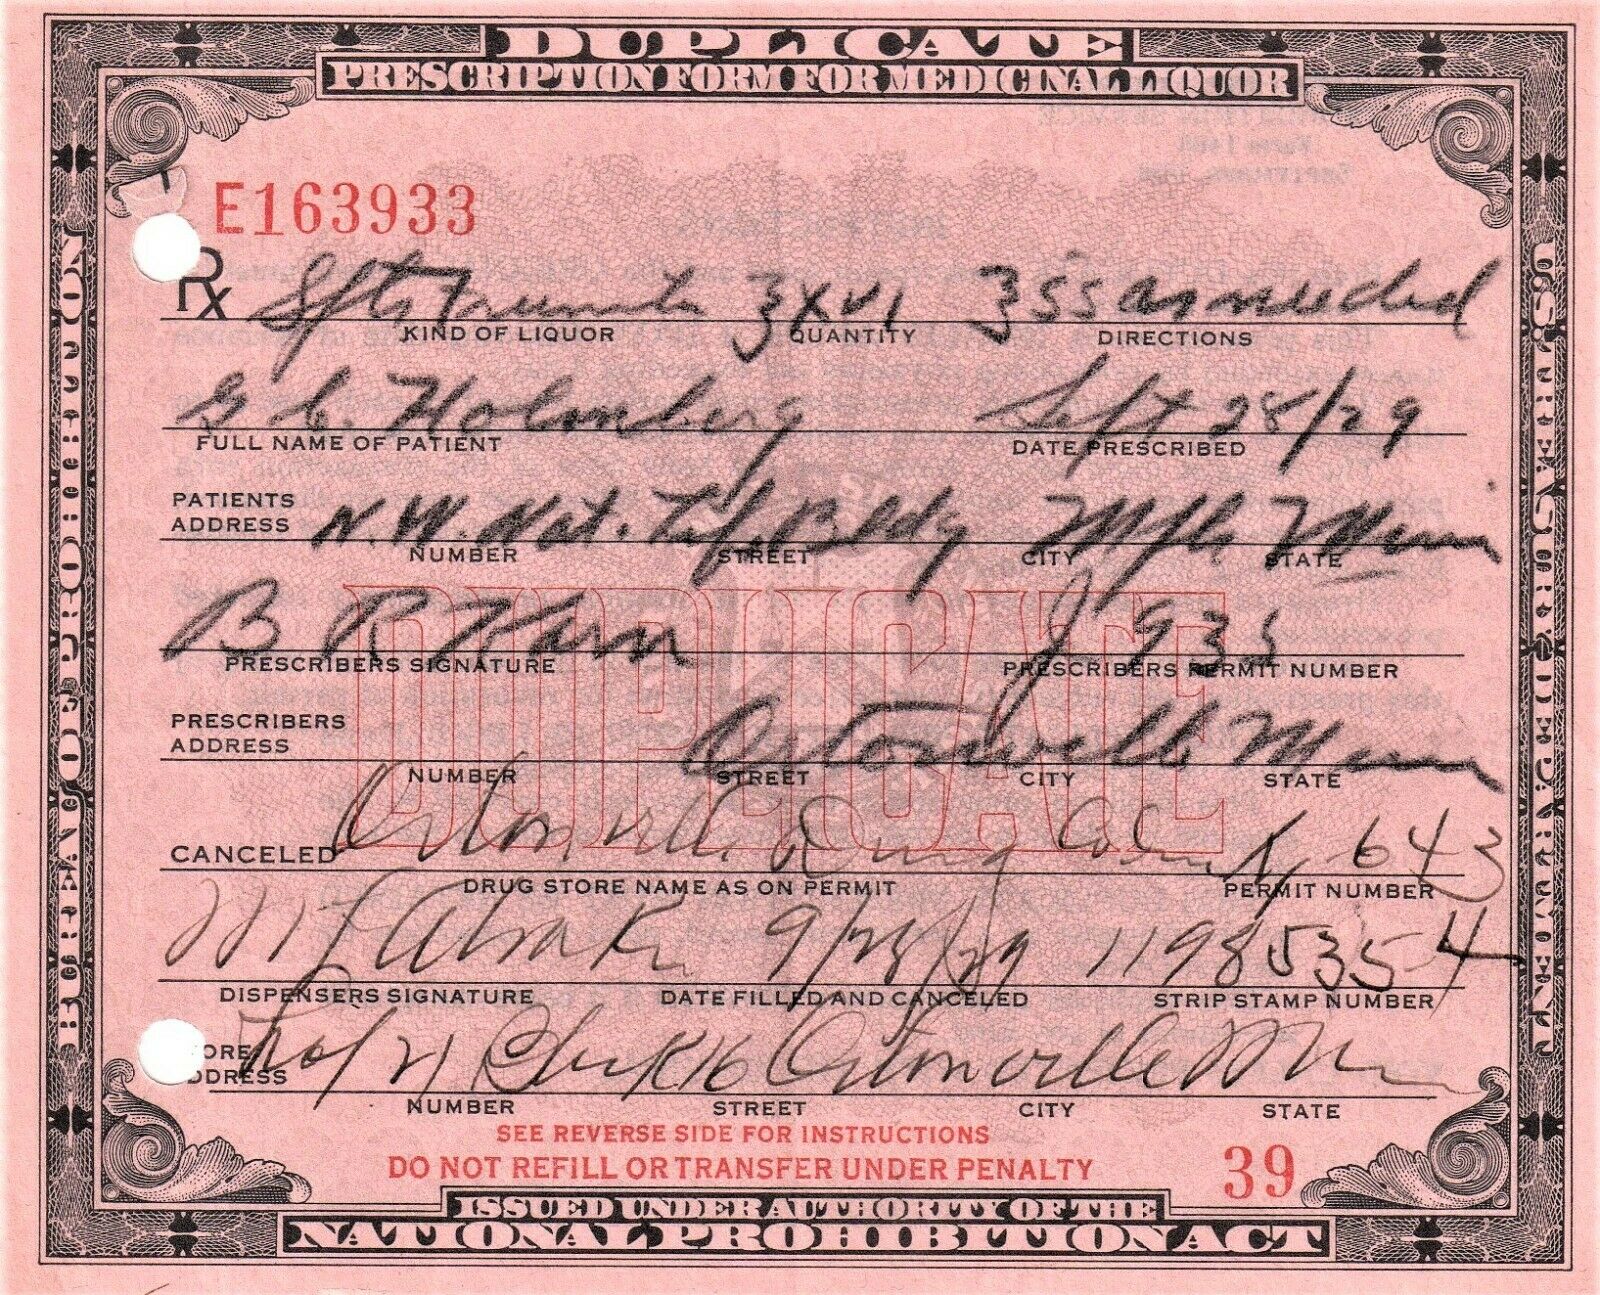 DUPLICATE
PRESCRIPTION FORM FOR MEDICINAL LIQUOR
E163933
Rx Spts Frumenti ʒxvi ʒss as needed
KIND OF LIQUOR QUANTITY DIRECTIONS
G. C. Holmberg Sept 28/29
FULL NAME OF PATIENT DATE PRESCRIBED
PATIENTS ADDRESS N.W. Nat. Lif. Bldg Mpls Minn
NUMBER STREET CITY STATE
B R Karn J 935
PRESCRIBERS SIGNATURE PRESCRIBERS PERMIT NUMBER
PRESCRIBERS ADDRESS Ortonville Minn
NUMBER STREET CITY STATE
DUPLICATE
CANCELED Ortonville Drug 643
DRUG STORE NAME AS ON PERMIT PERMIT NUMBER
9/28/29 11985354
DISPENSERS SIGNATURE DATE FILLED AND CANCELED STRIP STAMP NUMBER
Lot 21 Block 16 Ortonville Minn
NUMBER STREET CITY STATE
SEE REVERSE SIDE FOR INSTRUCTIONS
DO NOT REFILL OR TRANSFER UNDER PENALTY
39
ISSUED UNDER AUTHORITY OF THE
NATIONAL PROHIBITION ACT